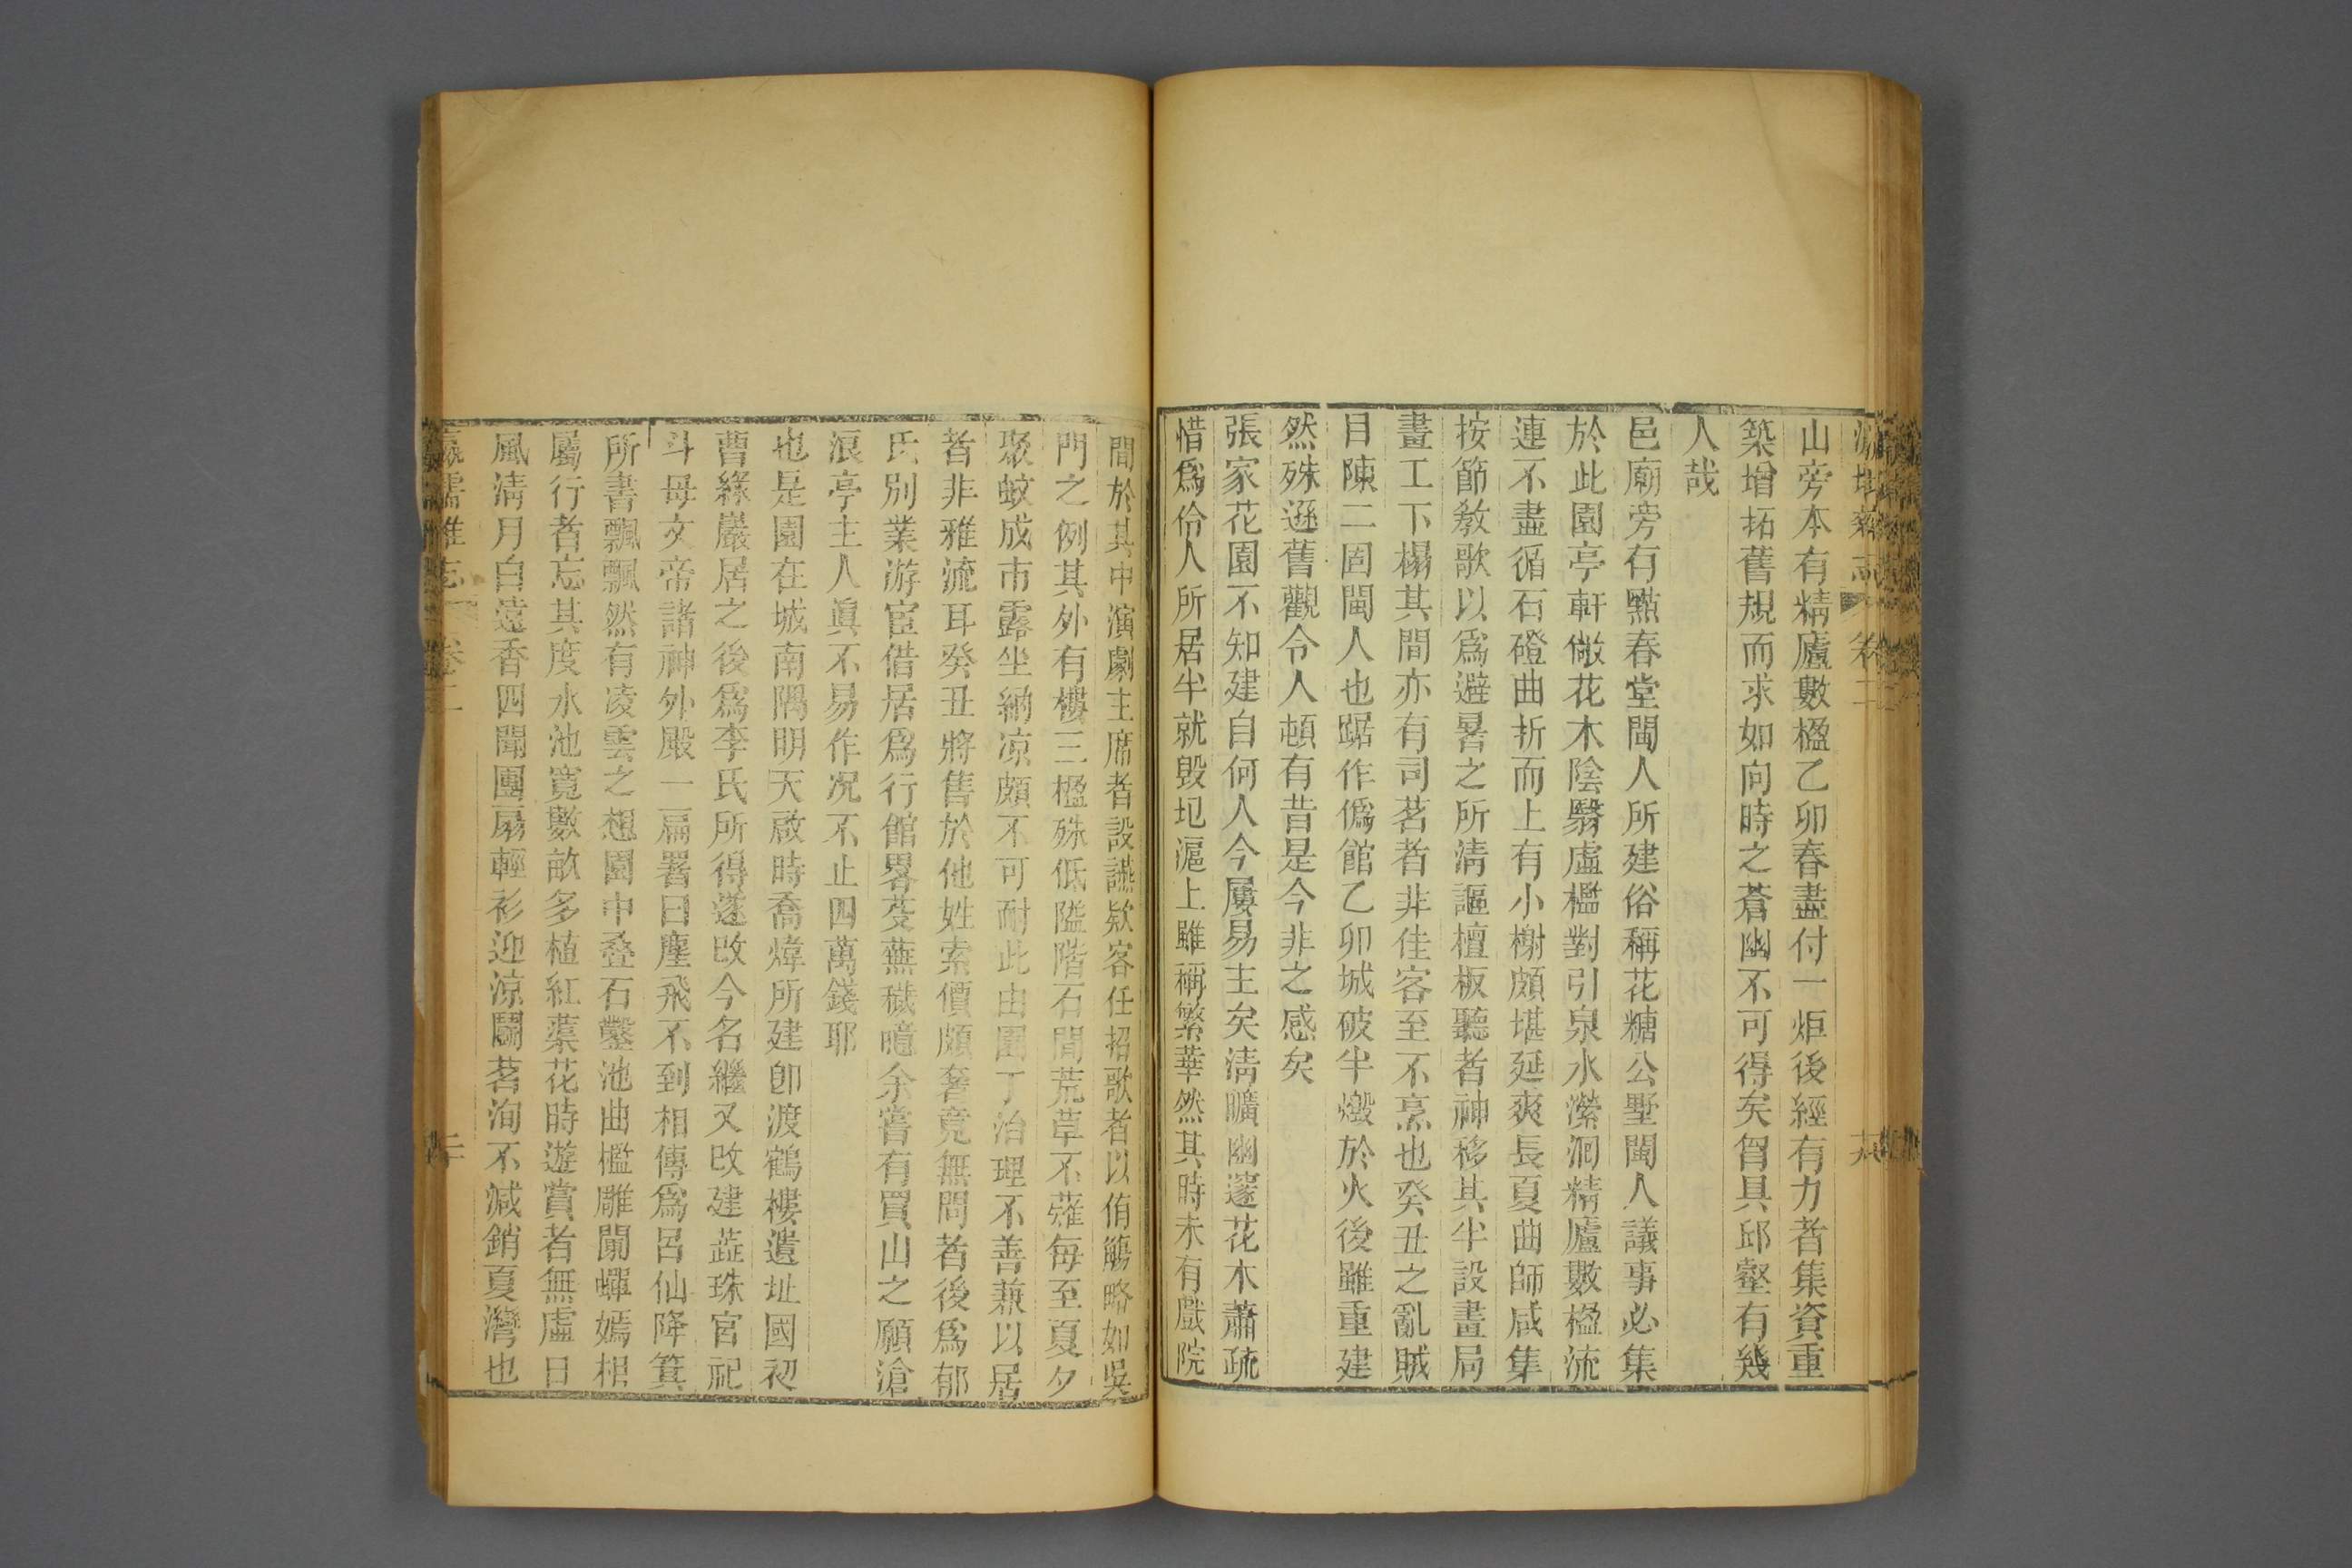 山旁本有精廬數楹乙卯春盡付一炬後經有力者集資重
築增拓舊規而求如向時之蒼幽不可得矣胷具邱壑有幾
人哉
邑廟旁有點春堂閩人所建俗稱花糖公墅閩人議事必集
於此園亭軒敞花木陰翳虛檻對引泉水瀠洄精廬數楹流
連不盡循石磴曲折而上有小榭頗堪延爽長夏曲師咸集
按節敎歌以爲避暑之所淸謳檀板聽者神移其半設畫局
畫工下榻其間亦有司茗者非佳客至不烹也癸丑之亂賊
目陳二固閩人也踞作僞館乙卯城破半燬於火後雖重建
然殊遜舊觀令人頓有昔是今非之感矣
張家花園不知建自何人今屢易主矣淸曠幽邃花木蕭疏
惜爲伶人所居半就毀圯滬上雖稱繁華然其時未有戲院
間於其中演劇主席者設讌欵客任招歌者以侑觴略如吳
門之例其外有樓三楹殊低隘階石間荒草不薙每至夏夕
聚蚊成市露坐納凉頗不可耐此由園丁治理不善兼以居
者非雅流耳癸丑將售於他姓索價頗奢竟無問者後爲郁
氏別業游宦借居爲行館畧芟蕪穢噫余嘗有買山之願滄
浪亭主人眞不易作况不止四萬錢耶
也是園在城南隅明天啟時喬煒所建卽渡鶴樓遺址國初
曹綠巖居之後爲李氏所得遂改今名繼又改建蕋珠宮祀
斗母文帝諸神外殿一扁署曰塵飛不到相傳爲呂仙降箕
所書飄飄然有凌雲之想園中叠石鑿池曲檻雕闌蟬嫣相
屬行者忘其度水池寬數畝多植紅蕖花時遊賞者無虛日
風淸月白遠香四聞團扇輕衫迎涼鬭茗洵不減銷夏灣也
瀛壖雜志 卷二